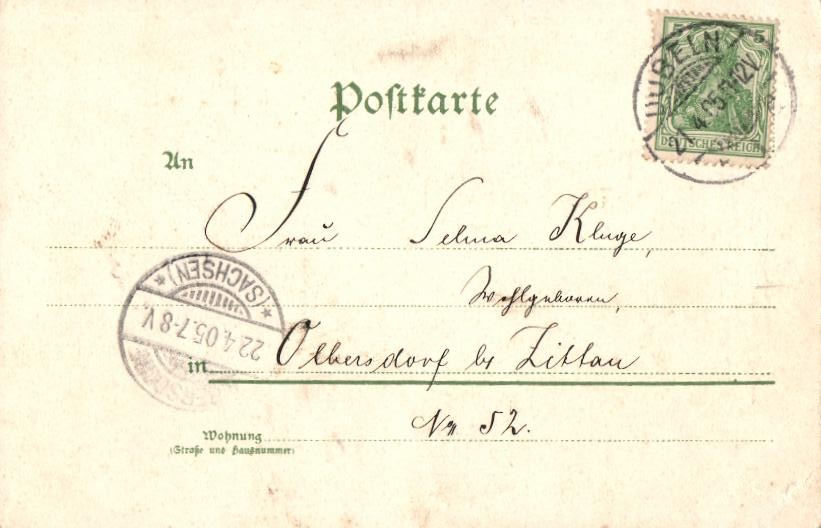 5 5
DÖBELN
21.4.05.11-12V.
DEUTSCHES REICH
Postkarte
An
Frau Selma Kluge,
Wohlgeboren,
(SACHSEN)
22.4.05.7-8V.
in Olbersdorf b/ Zittau
Wohnung No 52.
(Straße und Hausnummer)